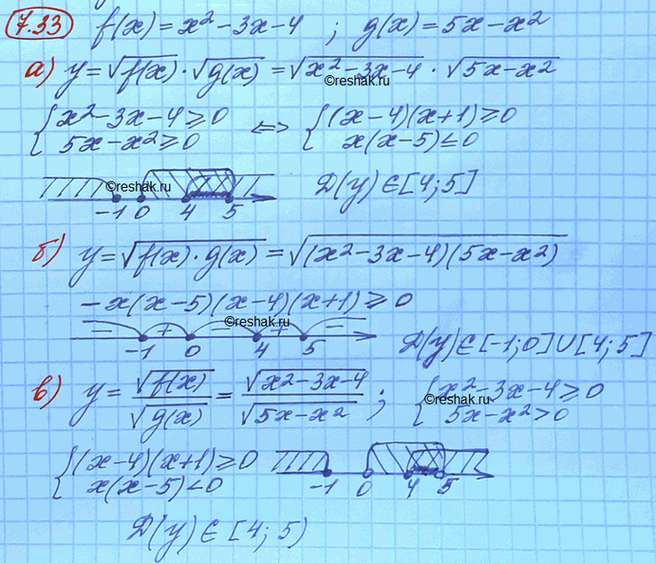 7.33 f(x) = x² - 3x - 4 ; g(x) = 5x - x²
а) y = √f(x) · √g(x) = √x² - 3x - 4 · √5x - x²
©reshak.ru
{ x² - 3x - 4 ≥ 0 <=> { (x - 4)(x + 1) ≥ 0
5x - x² ≥ 0 x(x - 5) ≤ 0
©reshak.ru
-1 0 4 5 D(y) ∈ [4; 5]
б) y = √f(x) · g(x) = √(x² - 3x - 4)(5x - x²)
- x(x - 5)(x - 4)(x + 1) ≥ 0
©reshak.ru
- + - + -
-1 0 4 5 D(y) ∈ [-1; 0] ∪ [4; 5]
в) y = √f(x) / √g(x) = √x² - 3x - 4 / √5x - x² ; { x² - 3x - 4 ≥ 0
©reshak.ru
5x - x² > 0
{ (x - 4)(x + 1) ≥ 0
x(x - 5) < 0
-1 0 4 5
D(y) ∈ [4; 5)